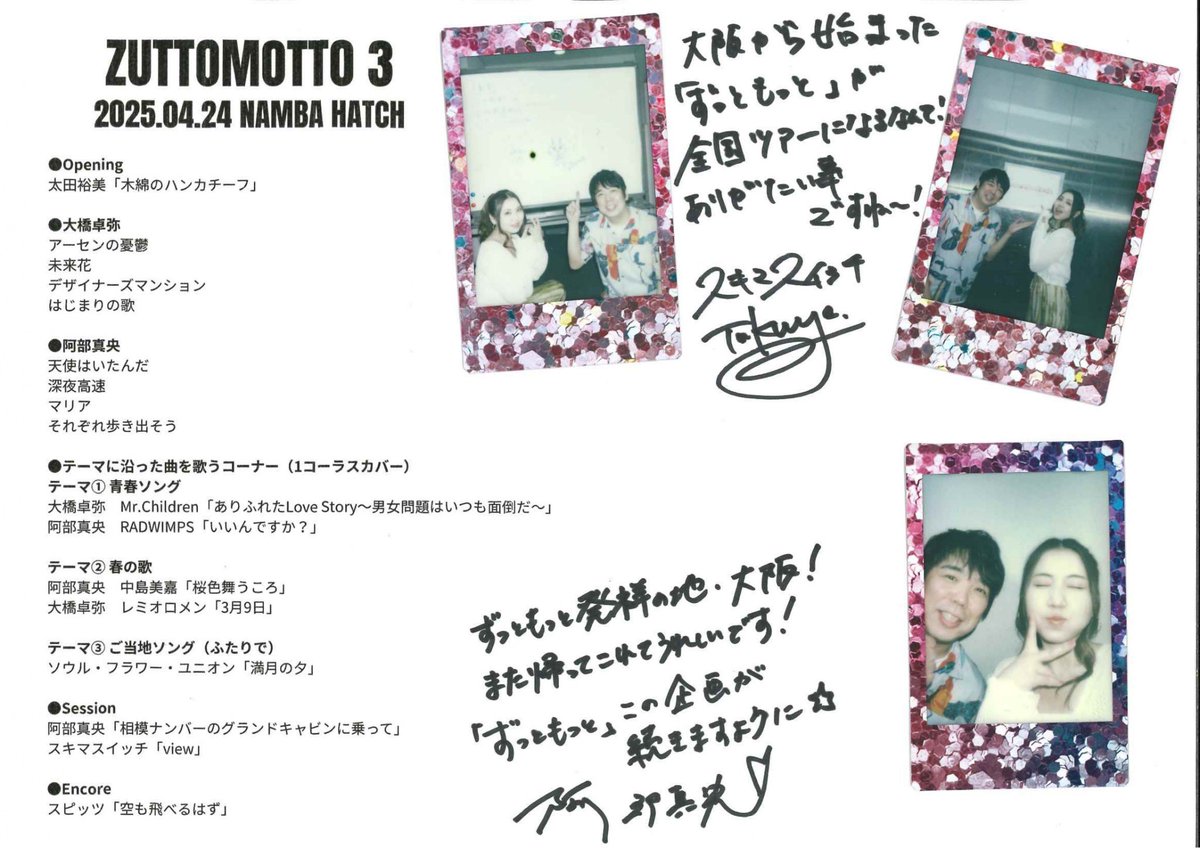 ZUTTOMOTTO 3
2025.04.24 NAMBA HATCH
●Opening
太田裕美「木綿のハンカチーフ」
●大橋卓弥
アーセンの憂鬱
未来花
デザイナーズマンション
はじまりの歌
●阿部真央
天使はいたんだ
深夜高速
マリア
それぞれ歩き出そう
●テーマに沿った曲を歌うコーナー（1コーラスカバー）
テーマ① 青春ソング
大橋卓弥　Mr.Children「ありふれたLove Story～男女問題はいつも面倒だ～」
阿部真央　RADWIMPS「いいんですか？」
テーマ② 春の歌
阿部真央　中島美嘉「桜色舞うころ」
大橋卓弥　レミオロメン「3月9日」
テーマ③ ご当地ソング（ふたりで）
ソウル・フラワー・ユニオン「満月の夕」
●Session
阿部真央「相模ナンバーのグランドキャビンに乗って」
スキマスイッチ「view」
●Encore
スピッツ「空も飛べるはず」
大阪から始まった
「ずっともっと」が
全国ツアーになるなんて!
ありがたい事
ですね〜!
スキマスイッチ
Takuya.
ずっともっと発祥の地・大阪!
また帰ってこれてうれしいです!
「ずっともっと」この企画が
続きますように☆
阿部真央♡